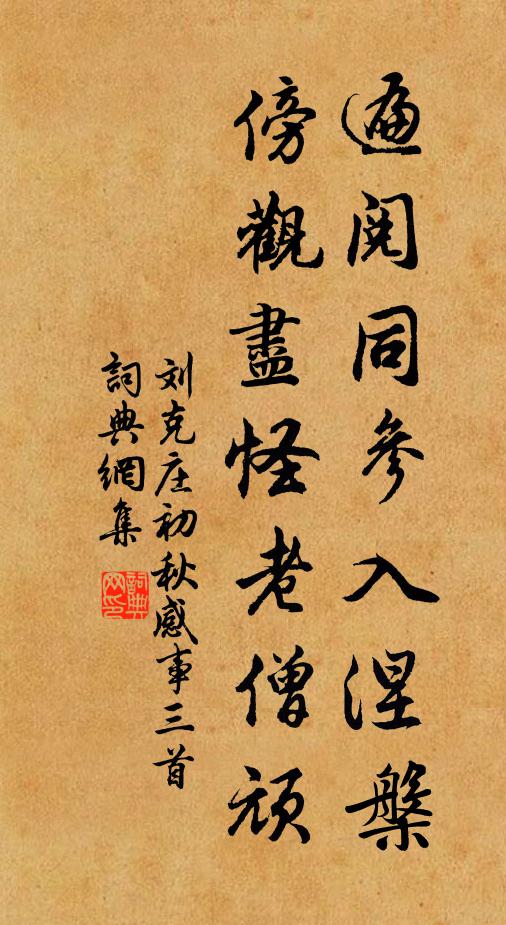 遍閱同參入涅槃
傍觀盡怪老僧頑
刘克庄初秋感事三首
詞典網集
詞典网印